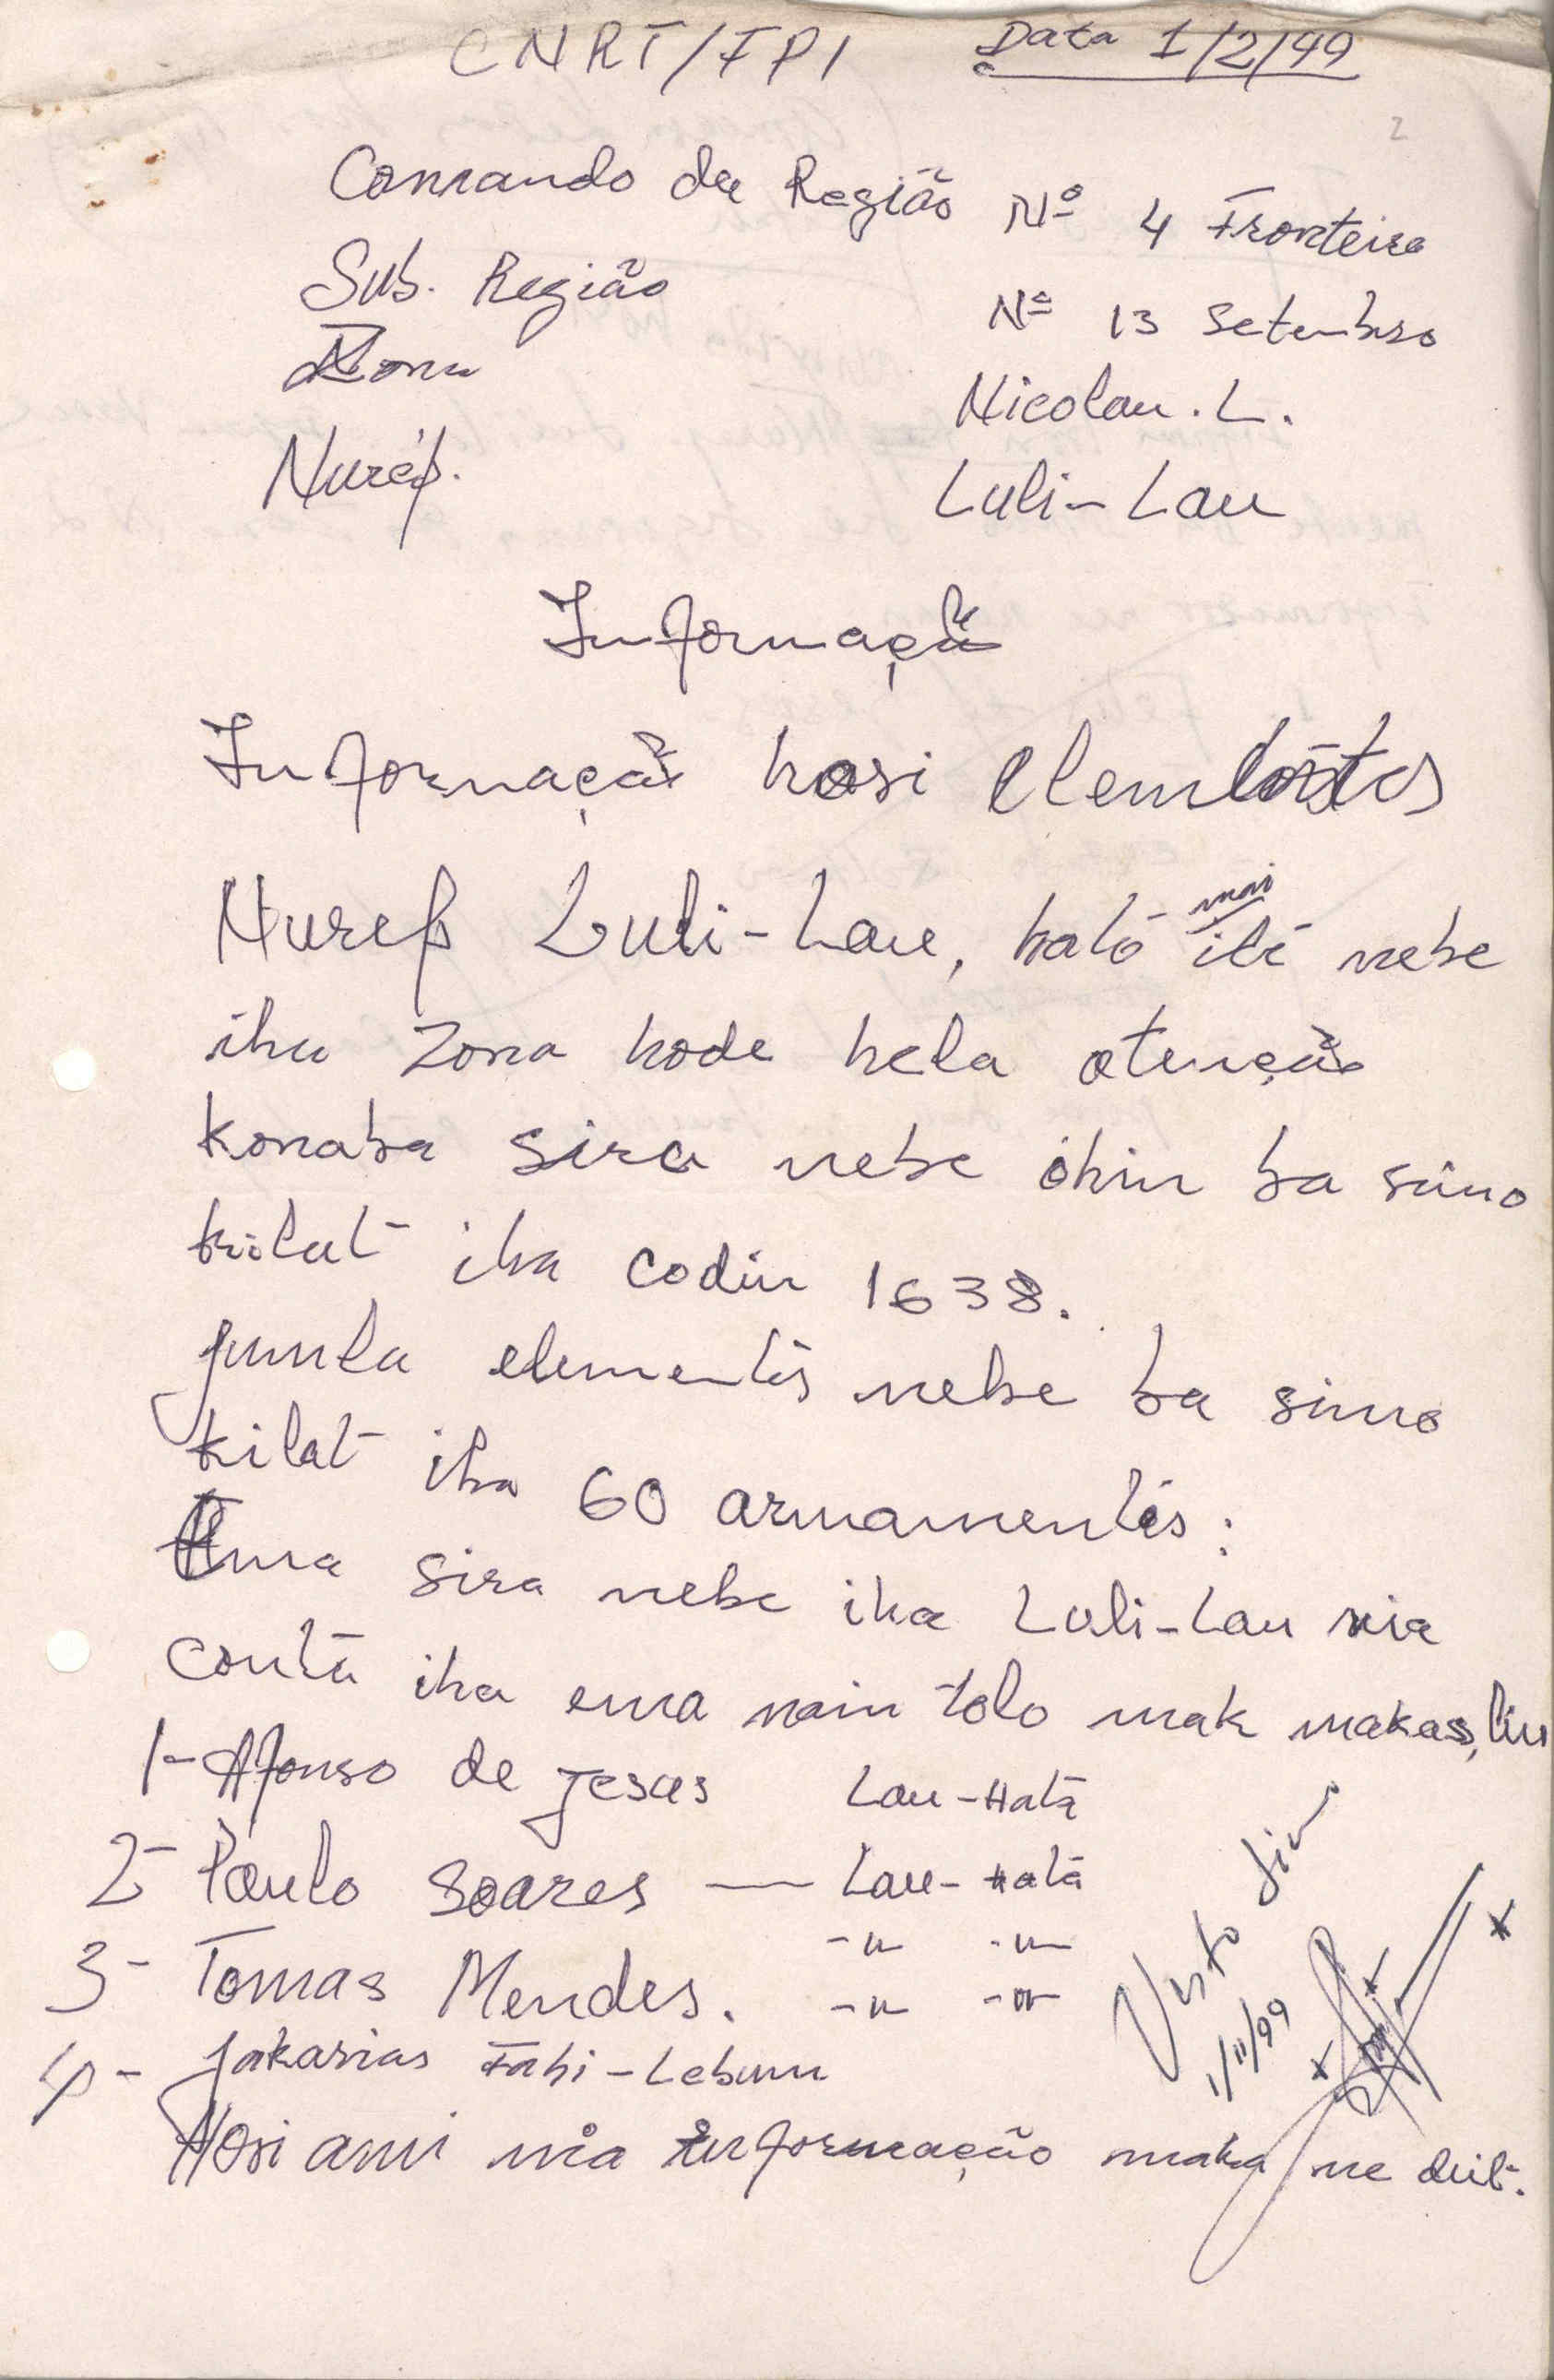 CNRT/FPI Data 1/2/99
2
Comando da Região Nº 4 Fronteira
Sub. Região Nº 13 Setembro
Zona Nicolau. L.
Nurép. Luli-Lau
Informação
Informação hosi Elementos
Nurep Luli-Lau, ható mai ité nebe
iha Zona hode hela atenção
konaba sira nebe ohin ba simo
kilat iha codin 1638.
Jumla elementos nebe ba simo
kilat iha 60 armamentos:
Ema sira nebe iha Luli-Lau nia
conta iha ema nain tolo mak makas, liu
1- Afonso de Jesus Lau-Hata
2- Paulo Soares — Lau-Hata
3- Tomas Mendes. -"- -"-
-"- -"-
4- Jakarias Fahi-Lebun
Hosi ami nia informação maka ne deit.
Visto
1/II/99